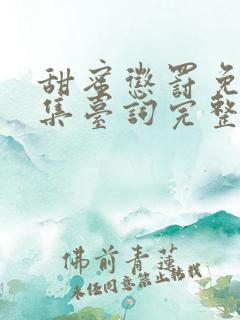 甜蜜懲罰免
集臺詞完整
佛前青蓮
未经同意禁止转载